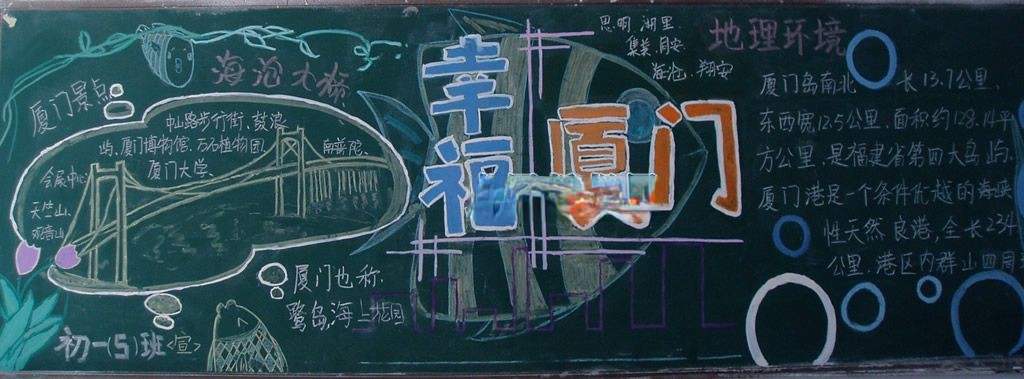 厦门景点
海沧大桥
中山路步行街、鼓浪
屿、厦门博物馆、万石植物园、南普陀、
厦门大学、
会展中心、
天竺山、
观音山
厦门也称
鹭岛、海上花园
初一(5)班<宣>
幸福
厦门
思明 湖里
集美、同安
海沧、翔安
地理环境
厦门岛南北 长13.7公里、
东西宽12.5公里、面积约128.14平
方公里、是福建省第四大岛屿、
厦门港是一个条件优越的海峡
性天然良港,全长234
公里、港区内群山四周